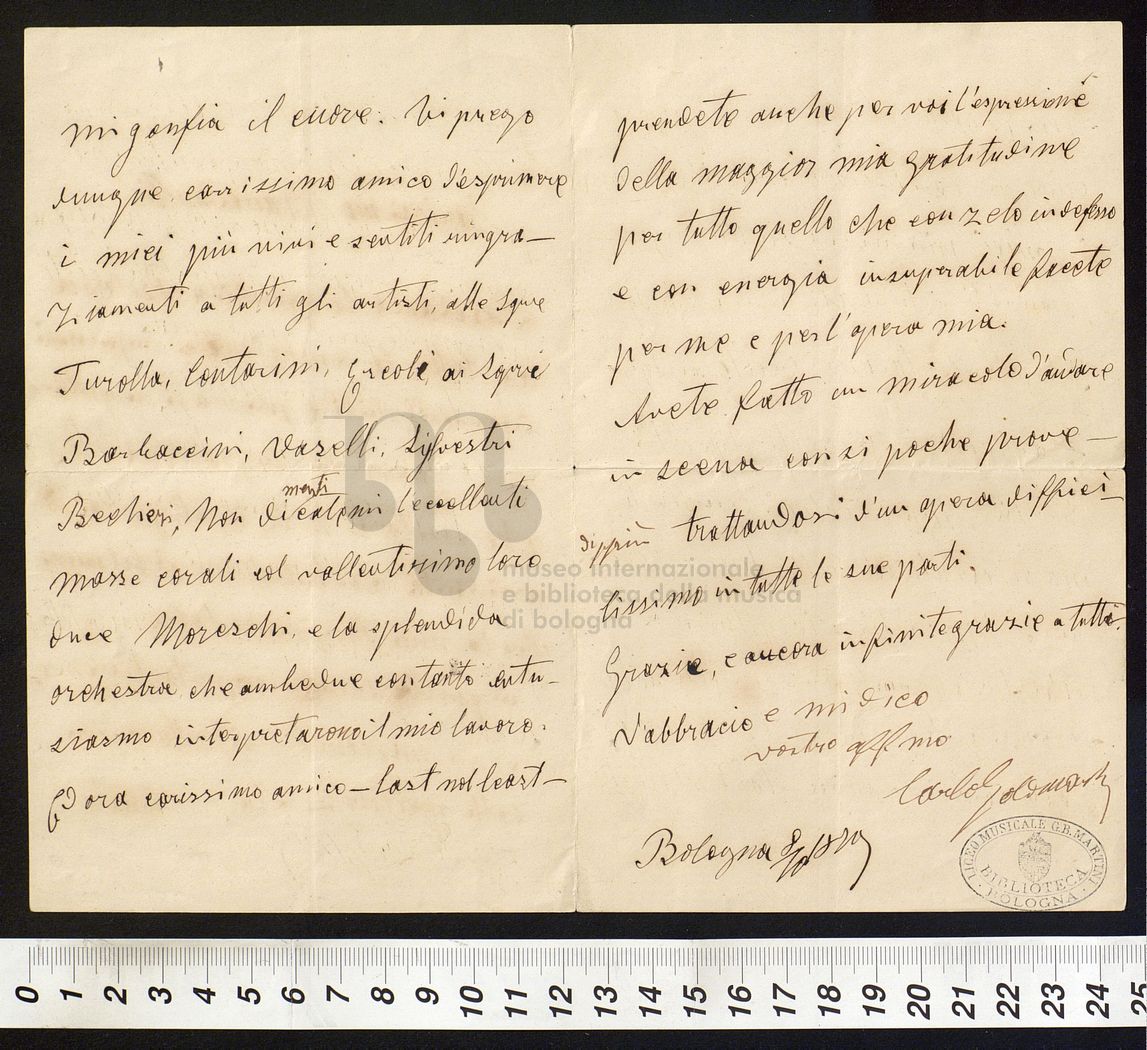 mi gonfia il cuore. Vi prego
dunque carissimo amico d'esprimere
i miei più vivi e sentiti ringra—
ziamenti a tutti gli artisti, alle Sgre
Turolla, Contarini, Ercoli, ai Sgri
Barbaccini, Vaselli, Sylvestri
menti
Non
masse corali col vallentissimo loro
duce Moreschi, e la splendida
orchestra che ambedue con tanto entu-
siasmo interpretarono il mio lavoro.
Ed ora carissimo amico – last not least –
prendete anche per voi l'espressione
della maggior mia gratitudine
per tutto quello che con zelo indefesso
e con energia insuperabile faceste
per me e per l'opera mia.
Avete fatto un miracolo d'andare
in scena con si poche prove –
dippiù trattandosi d'un opera diffici-
lissimo in tutte le sue parti.
Grazie, e ancora infinite grazie a tutti.
V'abbracio e mi dico
vostro affmo
Carlo Goldmark
Bologna
LICEO MUSICALE G.B. MARTINI
BIBLIOTECA
BOLOGNA
museo internazionale
e biblioteca della musica
di bologna
0 1 2 3 4 5 6 7 8 9 10 11 12 13 14 15 16 17 18 19 20 21 22 23 24 25